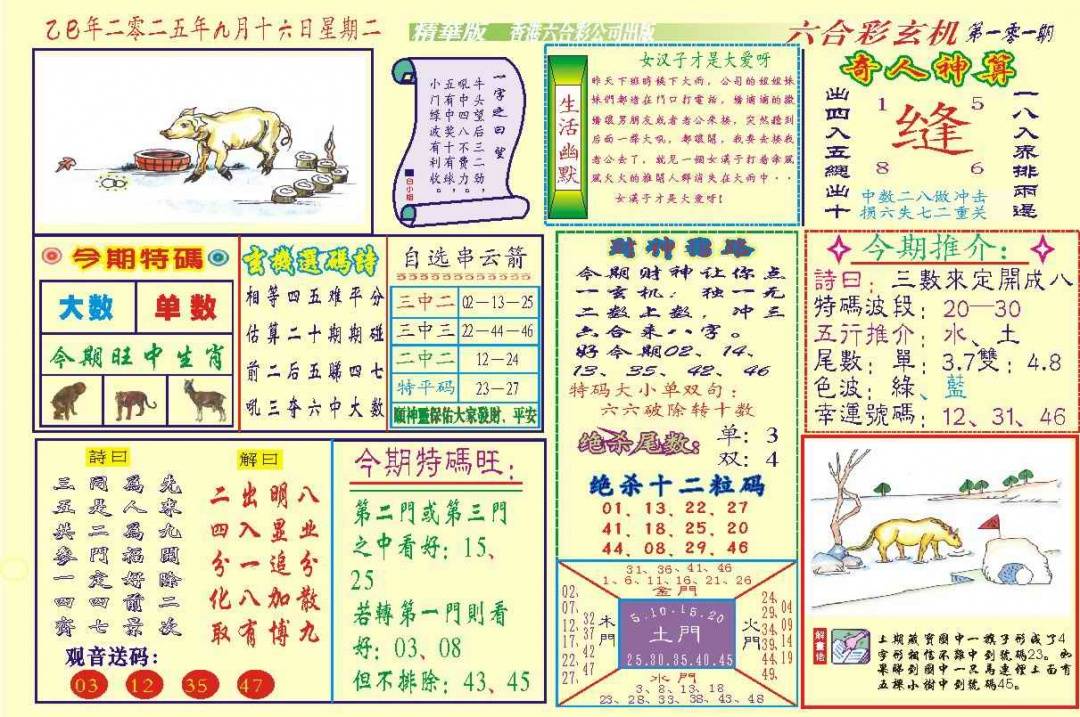 乙巳年二零二五年九月十六日星期二
精華版 香港六合彩公司出版
六合彩玄机 第一零一期
一字之曰望
牛头望后三劲
吼中四八不二力
五有中奖十费。
小门绿波有利收
白小姐
生活幽默
女汉子才是大爱呀
昨天下班時候下大雨，公司的姐姐妹
妹們都堵在門口打電話，
后面一聲大吼，都讓開，我要去接我
老公去了，就見一個女漢子打着傘風
風火火的推開人群消失在大雨中··
女漢子才是大愛呀!
奇人神算
出四入五總出十
1 5
缝
8 6
一八入來排兩邊
中数二八做冲击
损六失七二重关
今期特碼
大数 单数
今期旺中生肖
玄機選碼詩
相等四五难平分
估算二十期期碰
前二后五睇四七
吼三夺六中大数
自选串云箭
三中二 02—13—25
三中三 22—44—46
二中二 12—24
特平码 23—27
願神靈保佑大家發財、平安
今期财神让你点
一玄机：独一无
二数上数，冲三
六合来八字。
好今期02、14、
13、35、42、46
特码大小单双句：
六六破除转十数
绝杀尾数： 单：3
双：4
绝杀十二粒码
01、13、22、27
41、18、25、20
44、08、29、46
今期推介：
詩曰：三數來定開成八
特碼波段：20—30
五行推介：水、土
尾數：單：3.7雙：4.8
色波：綠、藍
幸運號碼：12、31、46
詩曰
先來九開除二次
為人為招好前景
同是二門定四七
三五共參一四齊
解曰
八业分散九
明显追加博
出入一八有
二四分化取
观音送码：
03 12 35 47
今期特碼旺：
第二門或第三門
之中看好：15、
25
若轉第一門則看
好：03、08
但不排除：43、45
31、36、41、46
1、6、11、16、21、26
金門
02、07、12、17、22、27、
32
37
42
47
木門
5.10.15.20
土門
25.30.35.40.45
火門
24、29、34、39、44、49、
04
09
14
19
水門
3、8、13、18
23、28、33、38、43、48
解畫佬
上期藏寶圖中一猴子形成了4
字形相信不難中到號碼23。如
果睇到圖中一只馬連煙上面有
五棵小樹中到號碼45。